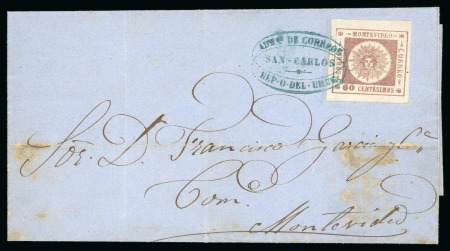 ADMON DE CORREOS
SAN-CARLOS
REP-O-DEL-URUG
MONTEVIDEO
CORREO
60 CENTESIMOS
60
60
Sor. D. Francisco Garcia y Ca
Com.
Montevideo